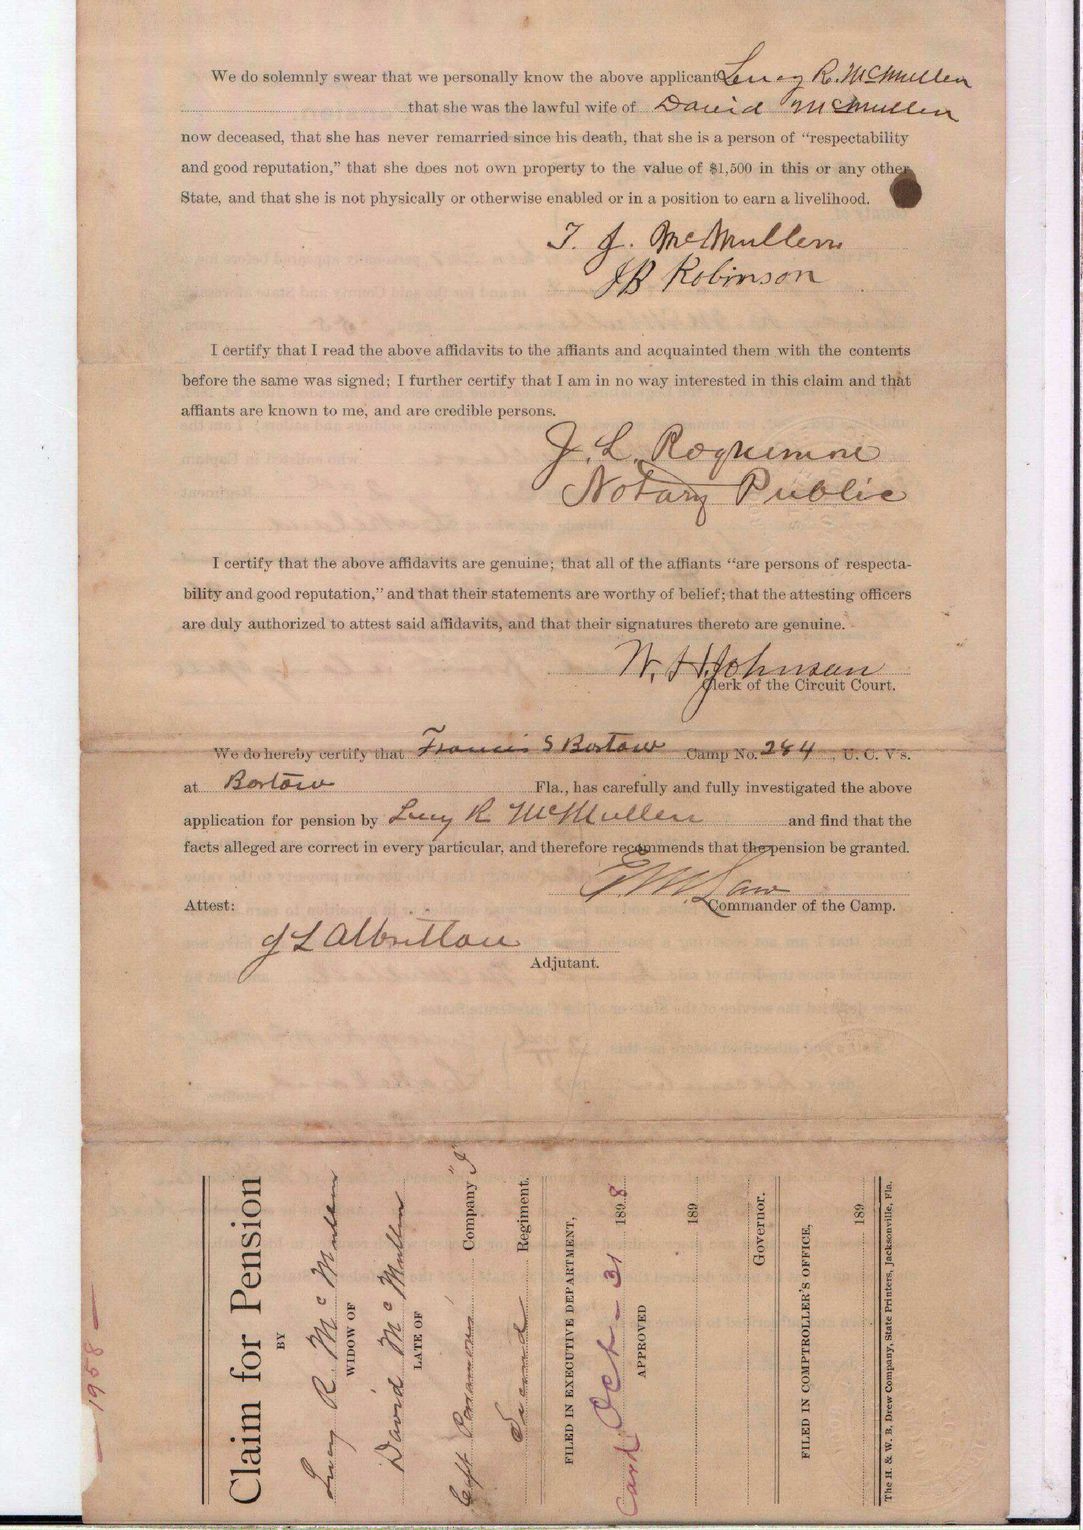 We do solemnly swear that we personally know the above applicant Lucy R. McMullen
that she was the lawful wife of David McMullen
now deceased, that she has never remarried since his death, that she is a person of “respectability
and good reputation,” that she does not own property to the value of $1,500 in this or any other
State, and that she is not physically or otherwise enabled or in a position to earn a livelihood.
T. J. McMullen
JB Robinson
I certify that I read the above affidavits to the affiants and acquainted them with the contents
before the same was signed; I further certify that I am in no way interested in this claim and that
affiants are known to me, and are credible persons.
J. L. Roquemore
Notary Public
I certify that the above affidavits are genuine; that all of the affiants “are persons of respecta-
bility and good reputation,” and that their statements are worthy of belief; that the attesting officers
are duly authorized to attest said affidavits, and that their signatures thereto are genuine.
W. H. Johnson
Clerk of the Circuit Court.
We do hereby certify that Francis S Bartow Camp No. 284, U. C. V's.
at Bartow Fla., has carefully and fully investigated the above
application for pension by Lucy R McMullen and find that the
facts alleged are correct in every particular, and therefore recommends that the pension be granted.
E. M. Law
Commander of the Camp.
Attest:
J L Albritton
Adjutant.
1958
Claim for Pension
BY
Lucy R McMullen
WIDOW OF
David McMullen
LATE OF
Capt Company "I"
Second Regiment.
FILED IN EXECUTIVE DEPARTMENT,
Card Oct - 31 1898
APPROVED
189
Governor.
FILED IN COMPTROLLER'S OFFICE,
189
The H. & W. B. Drew Company, State Printers, Jacksonville, Fla.